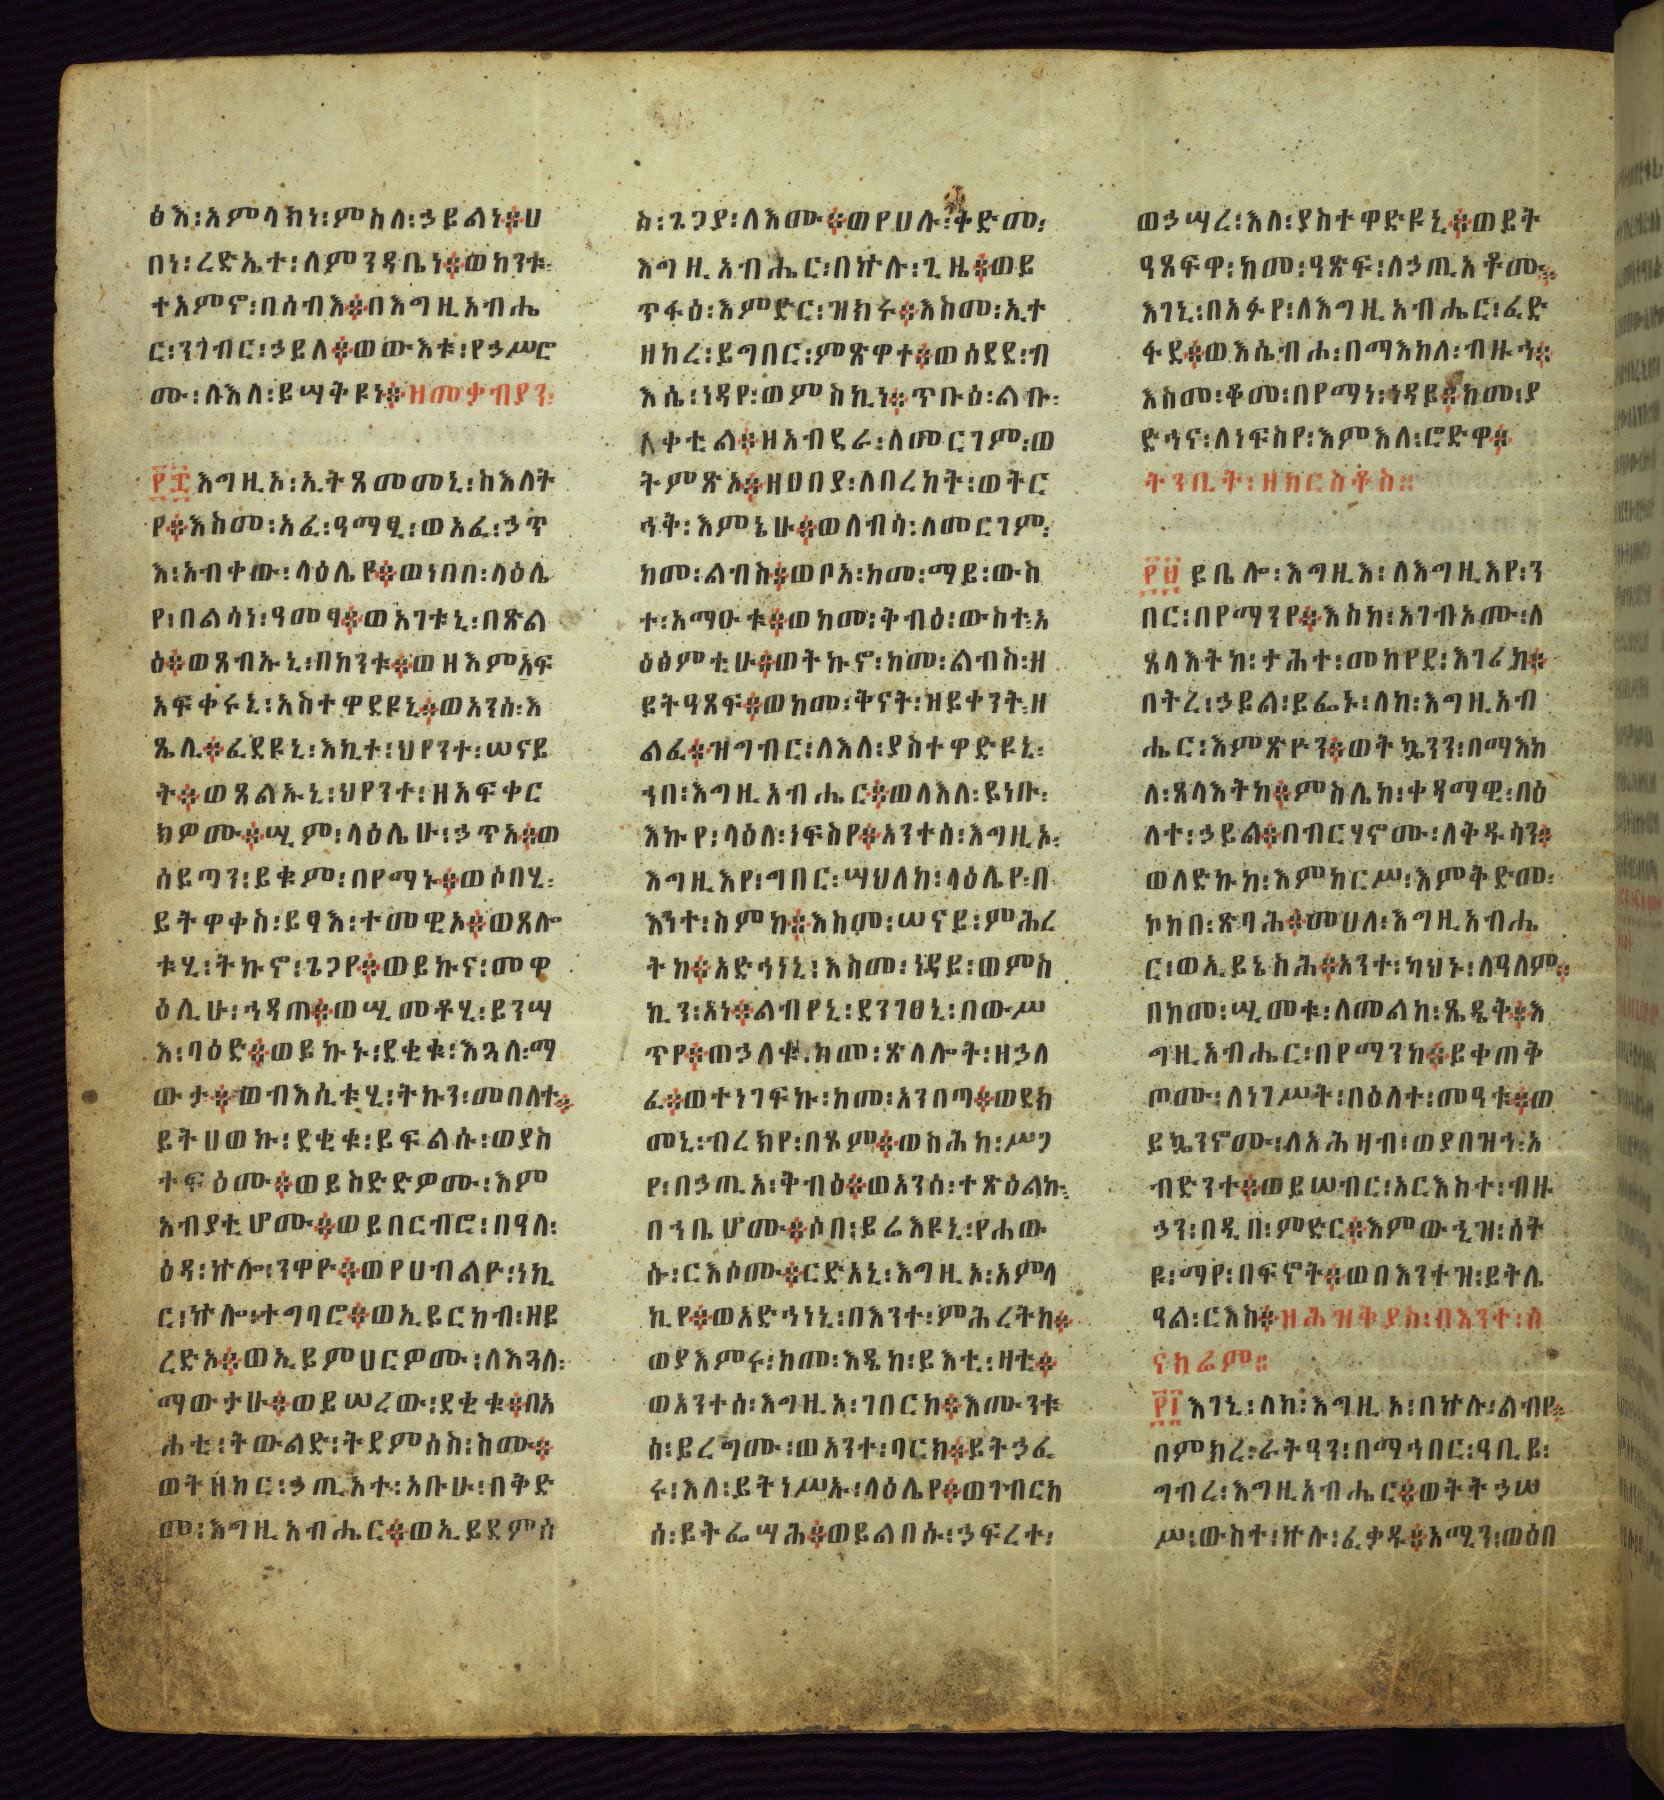 ፅእ፡አምላክነ፡ምስለ፡ኃይልነ፨ሀ
በነ፡ረድኤተ፡ለምንዳቤነ፨ወከንቱ፡
ተአምኖ፡በሰብእ፨በእግዚአብሔ
ር፡ንጎብር፡ኃይለ፨ወውእቱ፡የኃሥሮ
ሙ፡ለእለ፡ይሣቅዩነ፨ዘመቃብያን፡
፻፰እግዚኦ፡ኢትጸመመኒ፡ስእለት
የ፨እስመ፡አፈ፡ዓማፂ፡ወአፈ፡ኃጥ
እ፡አብቀው፡ላዕሌየ፨ወነበበ፡ላዕሌ
የ፡በልሳነ፡ዓመፃ፨ወአገቱኒ፡በጽል
ዕ፨ወጸብኡኒ፡በከንቱ፨ወዘእምአፍ
አፍቀሩኒ፡አስተዋደዩኒ፨ወአንሰ፡እ
ጼሊ፨ፈደዩኒ፡እኪተ፡ህየንተ፡ሠናይ
ት፨ወጸልኡኒ፡ህየንተ፡ዘአፍቀር
ክዎሙ፨ሢም፡ላዕሌሁ፡ኃጥአ፨ወ
ሰይጣን፡ይቁም፡በየማኑ፨ወሶበሂ፡
ይትዋቀስ፡ይፃእ፡ተመዊኦ፨ወጸሎ
ቱሂ፡ትኩኖ፡ጌጋየ፨ወይኩና፡መዋ
ዕሊሁ፡ኅዳጠ፨ወሢመቶሂ፡ይንሣ
እ፡ባዕድ፨ወይኩኑ፡ደቂቁ፡እጓለ፡ማ
ውታ፨ወብእሲቱሂ፡ትኩን፡መበለተ፨
ይትሀወኩ፡ደቂቁ፡ይፍልሱ፡ወያስ
ተፍዕሙ፨ወይስድድዎሙ፡እም
አብያቲሆሙ፨ወይበርብሮ፡በዓለ፡
ዕዳ፡ኵሎ፡ንዋዮ፨ወየሀብልዮ፡ነኪ
ር፡ኵሎ፡ተግባሮ፨ወኢይርከብ፡ዘይ
ረድኦ፨ወኢይምሀርዎሙ፡ለእጓለ፡
ማውታሁ፨ወይሠረው፡ደቂቁ፨በአ
ሐቲ፡ትውልድ፡ትደምሰስ፡ስሙ፨
ወትዘከር፡ኃጢአተ፡አቡሁ፡በቅድ
መ፡እግዚአብሔር፨ወኢይደምሰ
ስ፡ጌጋያ፡ለእሙ፨ወየሀሉ፡ቅድመ፡
እግዚአብሔር፡በኵሉ፡ጊዜ፨ወይ
ጥፋዕ፡እምድር፡ዝክሩ፨እስመ፡ኢተ
ዘከረ፡ይግበር፡ምጽዋተ፨ወሰደደ፡ብ
እሴ፡ነዳየ፡ወምስኪነ፨ጥቡዕ፡ልቡ፡
ለቀቲል፨ዘአብደራ፡ለመርገም፡ወ
ትምጽኦ፨ዘፀበያ፡ለበረከት፡ወትር
ኅቅ፡እምኔሁ፨ወለብሳ፡ለመርገም፡
ከመ፡ልብስ፨ወቦአ፡ከመ፡ማይ፡ውስ
ተ፡አማዑቱ፨ወከመ፡ቅብዕ፡ውስተ፡አ
ዕፅምቲሁ፨ወትኩኖ፡ከመ፡ልብስ፡ዘ
ይትዓጸፍ፨ወከመ፡ቅናት፡ዝይቀንት፡ዘ
ልፈ፨ዝግብር፡ለእለ፡ያስተዋድዩኒ፡
ኀበ፡እግዚአብሔር፨ወለእለ፡ይነቡ፡
እኩየ፡ላዕለ፡ነፍስየ፨አንተሰ፡እግዚኦ፡
እግዚእየ፡ግበር፡ሣህለከ፡ላዕሌየ፡በ
እንተ፡ስምከ፨እስመ፡ሠናይ፡ምሕረ
ትከ፨አድኅነኒ፡እስመ፡ነዳይ፡ወምስ
ኪን፡አነ፨ልብየኒ፡ደንገፀኒ፡በውሥ
ጥየ፨ወኃለቁ፡ከመ፡ጽላሎት፡ዘኃለ
ፈ፨ወተነገፍኩ፡ከመ፡አንበጣ፨ወደክ
መኒ፡ብረክየ፡በጾም፨ወስሕከ፡ሥጋ
የ፡በኃጢአ፡ቅብዕ፨ወአንሰ፡ተጽዕልኩ፡
በኀቤሆሙ፨ሶበ፡ይሬእዩኒ፡የሐው
ሱ፡ርእሶሙ፨ርድአኒ፡እግዚኦ፡አምላ
ኪየ፨ወአድኅነኒ፡በእንተ፡ምሕረትከ፨
ወያእምሩ፡ከመ፡እዴከ፡ይእቲ፡ዛቲ፨
ወአንተሰ፡እግዚአ፡ገበርከ፨እሙንቱ
ሰ፡ይረግሙ፡ወአንተ፡ባርክ፨ይትኃፈ
ሩ፡እለ፡ይትነሥኡ፡ላዕሌየ፨ወገብርከ
ሰ፡ይትፌሣሕ፨ወይልበሱ፡ኃፍረተ፡
ወኃሣረ፡እለ፡ያስተዋድዩኒ፨ወይት
ዓጸፍዋ፡ከመ፡ዓጽፍ፡ለኃጢአቶሙ፨
እገኒ፡በአፉየ፡ለእግዚአብሔር፡ፈድ
ፋደ፨ወእሴብሖ፡በማእከለ፡ብዙኅ፨
እስመ፡ቆመ፡በየማነ፡ነዳይ፨ከመ፡ያ
ድኅና፡ለነፍስየ፡እምእለ፡ሮድዋ፨
ትንቢት፡ዘክርስቶስ።
፻፱ይቤሎ፡እግዚእ፡ለእግዚእየ፡ን
በር፡በየማንየ፨እስከ፡አገብኦሙ፡ለ
ጸላእትከ፡ታሕተ፡መከየደ፡እገሪከ፨
በትረ፡ኃይል፡ይፌኑ፡ለከ፡እግዚአብ
ሔር፡እምጽዮን፨ወትኴንን፡በማእከ
ለ፡ጸላእትከ፨ምስሌከ፡ቀዳማዊ፡በዕ
ለተ፡ኃይል፨በብርሃኖሙ፡ለቅዱሳን፨
ወለድኩከ፡እምከርሥ፡እምቅድመ፡
ኮከበ፡ጽባሕ፨መሀለ፡እግዚአብሔ
ር፡ወኢይኔስሕ፨አንተ፡ካህኑ፡ለዓለም፨
በከመ፡ሢመቱ፡ለመልከ፡ጼዴቅ፨እ
ግዚአብሔር፡በየማንከ፨ይቀጠቅ
ጦሙ፡ለነገሥት፡በዕለተ፡መዓቱ፨ወ
ይኴንኖሙ፡ለአሕዛብ፡ወያበዝኅ፡አ
ብድንተ፨ወይሠብር፡አርእስተ፡ብዙ
ኃን፡በዲበ፡ምድር፨እምውኂዝ፡ሰት
ዩ፡ማየ፡በፍኖት፨ወበእንተዝ፡ይትሌ
ዓል፡ርእስ፨ዘሕዝቅያስ፡በእንተ፡ሰ
ናክሬም።
፻፲እገኒ፡ለከ፡እግዚአ፡በኵሉ፡ልብየ፨
በምክረ፡ራትዓን፡በማኅበር፡ዓቢይ፡
ግብረ፡እግዚአብሔር፨ወትትኃሠ
ሥ፡ውስተ፡ኵሉ፡ፈቃዱ፨አሚን፡ወዕበ